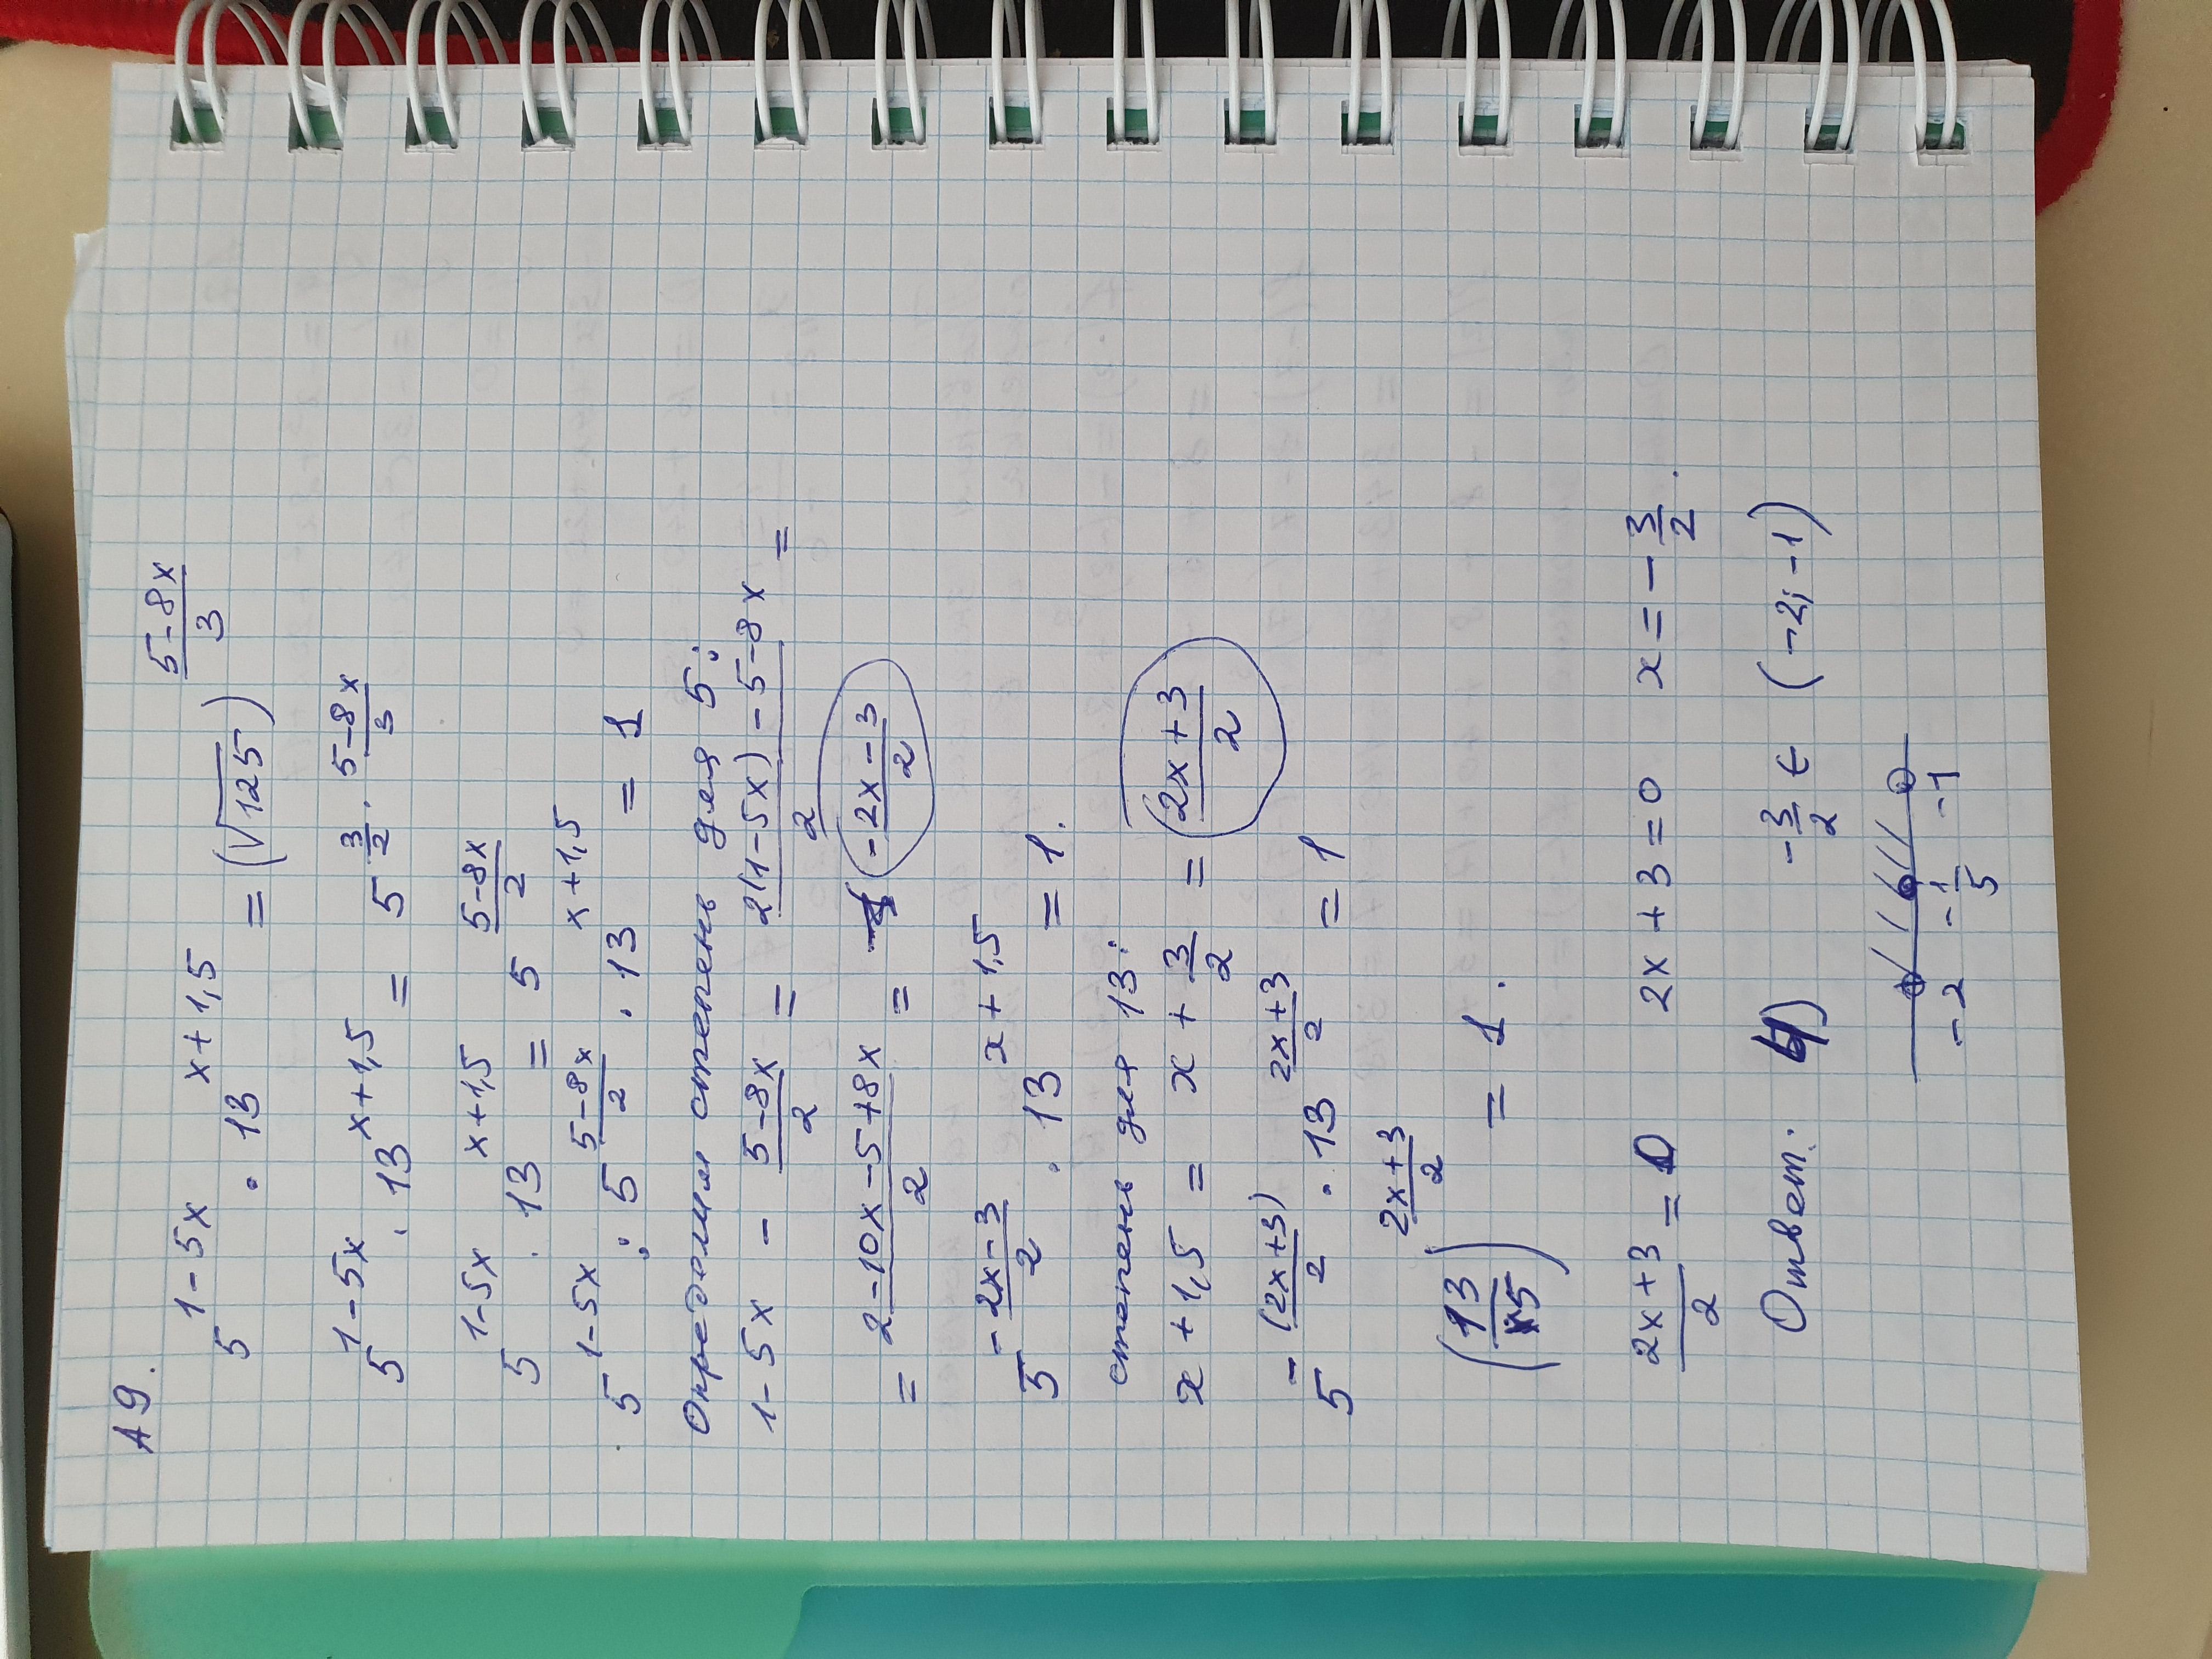 А9.
5^{1-5x} · 13^{x+1,5} = (√125)^{\frac{5-8x}{3}}
5^{1-5x} · 13^{x+1,5} = 5^{\frac{3}{2} · \frac{5-8x}{3}}
5^{1-5x} · 13^{x+1,5} = 5^{\frac{5-8x}{2}}
5^{1-5x} : 5^{\frac{5-8x}{2}} · 13^{x+1,5} = 1
Определим степень для 5:
1-5x - \frac{5-8x}{2} = \frac{2(1-5x)-5-8x}{2} =
= \frac{2-10x-5+8x}{2} = (\frac{-2x-3}{2})
5^{-\frac{2x-3}{2}} · 13^{x+1,5} = 1.
степень для 13:
x+1,5 = x+\frac{3}{2} = (\frac{2x+3}{2})
5^{-\frac{(2x+3)}{2}} · 13^{\frac{2x+3}{2}} = 1
(\frac{13}{5})^{\frac{2x+3}{2}} = 1.
\frac{2x+3}{2} = 0 2x+3=0 x=-\frac{3}{2}.
Ответ: 4) -\frac{3}{2} ∈ (-2; -1)
-2 -\frac{1}{5} -1